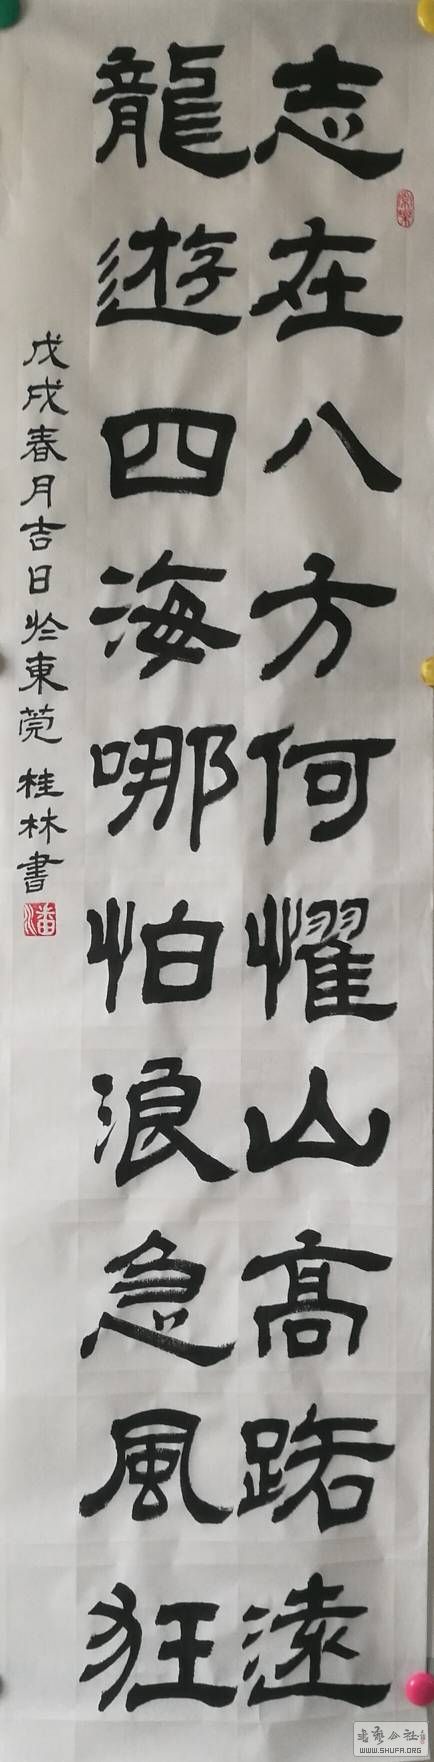 志在八方何懼山高路遠
龍遊四海哪怕浪急風狂
戊戌春月吉日於東莞 桂林書
潘
WWW.SHUFA.ORG